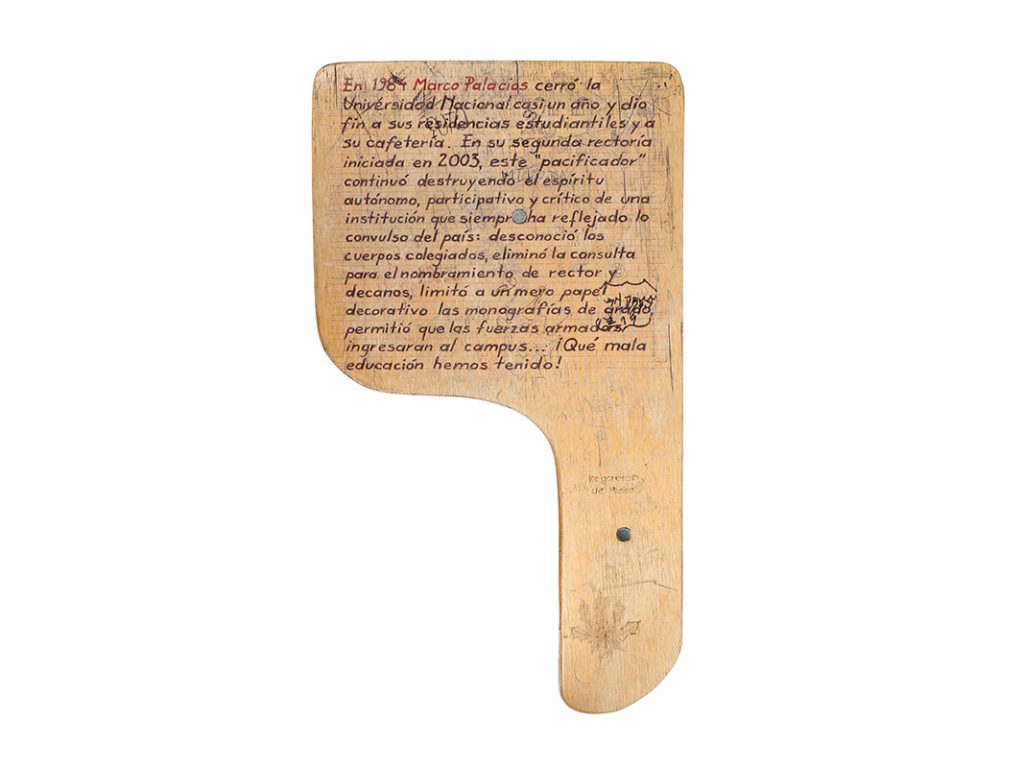 En 1984 Marco Palacios cerró la
Universidad Nacional casi un año y dio
fin a sus residencias estudiantiles y a
su cafetería. En su segunda rectoría
iniciada en 2003, este "pacificador"
continuó destruyendo el espíritu
autónomo, participativo y crítico de una
institución que siempre ha reflejado lo
convulso del país: desconoció los
cuerpos colegiados, eliminó la consulta
para el nombramiento de rector y
decanos, limitó a un mero papel
decorativo las monografías de grado,
permitió que las fuerzas armadas
ingresaran al campus... ¡Qué mala
educación hemos tenido!